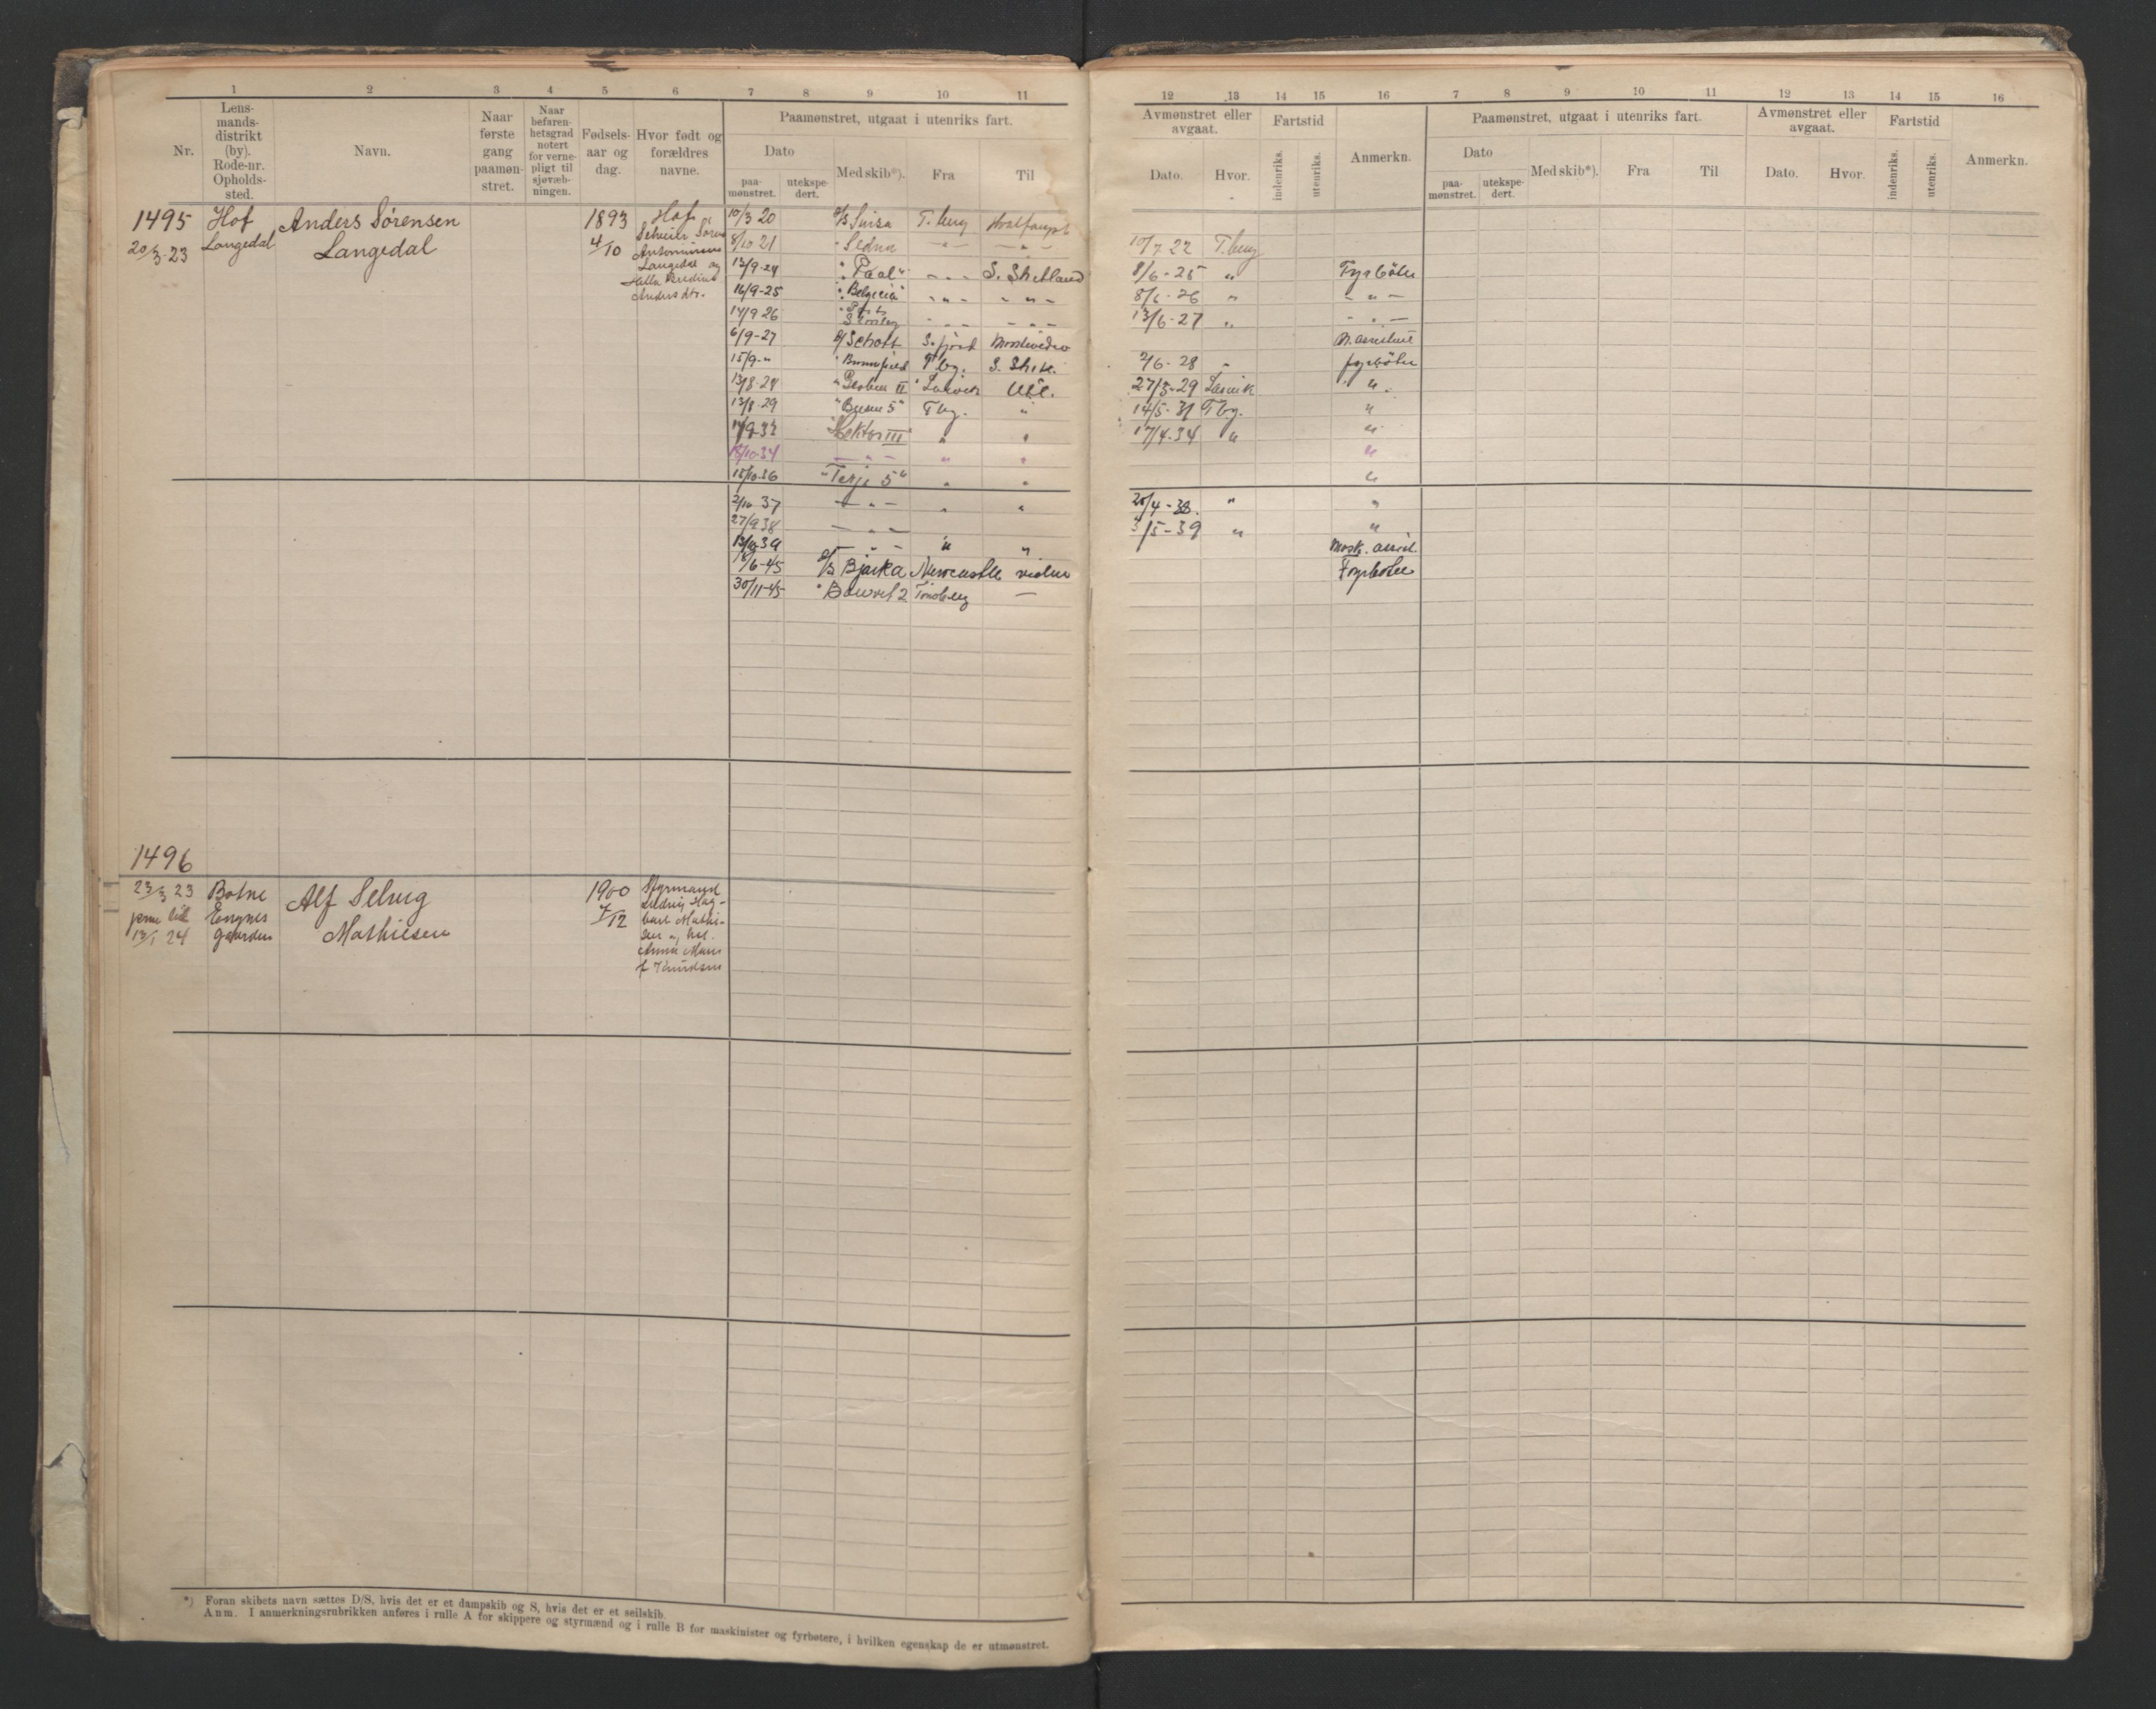 1 2 3 4 5 6 7 8 9 10 11
Nr.
Lens-
mands-
distrikt
(by).
Rode-nr.
Opholds-
sted.
Navn.
Naar
første
gang
paamøn-
stret.
Naar
befaren-
hetsgrad
notert
for verne-
pligt til
sjøvæb-
ningen.
Fødsels-
aar og
dag.
Hvor født og
forældres
navne.
Paamønstret, utgaat i utenriks fart.
Dato
paa-
mønstret.
utekspe-
dert.
Med skib*).
Fra
Til
1495
20/3-23
Hof
Langedal
Anders Sørensen
Langedal
1893
4/10
Hof
Langedal og
Anders dtr.
10/3 20 T.berg Hvalfangst
8/10 21 " Sedna -"- -"-
12/9-24 " Paal" -"- S. Shetland
16/9-25 "Belgica" -"- -"-
14/9 26 -"- -"-
6/9-27 S.fjord
15/9-" T.bg. S. Shetl.
13/8-29 "Busen 5" T bg. "
14/9-32 "Hektor III" " "
18/10-34 -"- " "
15/10-36 "Terje 5" " "
2/10-37 -"- " "
27/9 38 -"-
13/10-39 -"- " "
18/6-45 D/S Bjarka Newcastle
30/11-45 " Tønsberg -
1496
23/3 23
13/1 24
Botne
Alf Selvig
Mathiesen
1900
7/12
Styrmand
Anna Marie
f Knudsen
*) Foran skibets navn sættes D/S, hvis det er et dampskib og S, hvis det er et seilskib.
Anm. I anmerkningsrubrikken anføres i rulle A for skippere og styrmænd og i rulle B for maskinister og fyrbøtere, i hvilken egenskap de er utmønstret.
12 13 14 15 16 7 8 9 10 11 12 13 14 15 16
Avmønstret eller
avgaat.
Dato. Hvor.
Fartstid
indenriks.
utenriks.
Anmerkn.
Paamønstret, utgaat i utenriks fart.
Dato
paa-
mønstret.
utekspe-
dert.
Med skib*).
Fra
Til
Avmønstret eller
avgaat.
Dato. Hvor.
Fartstid
indenriks.
utenriks.
Anmerkn.
10/7 22 T.berg
8/6-25 " Fyrbøter
8/6-26 " -"-
13/6-27 " -"-
M. assistent
2/6-28 " fyrbøter
27/5-29 Larvik "
14/5-31 T bg. "
17/4-34 " "
"
"
20/4-38. " "
3/5-39 " "
Mask. assist.
Fyrbøter